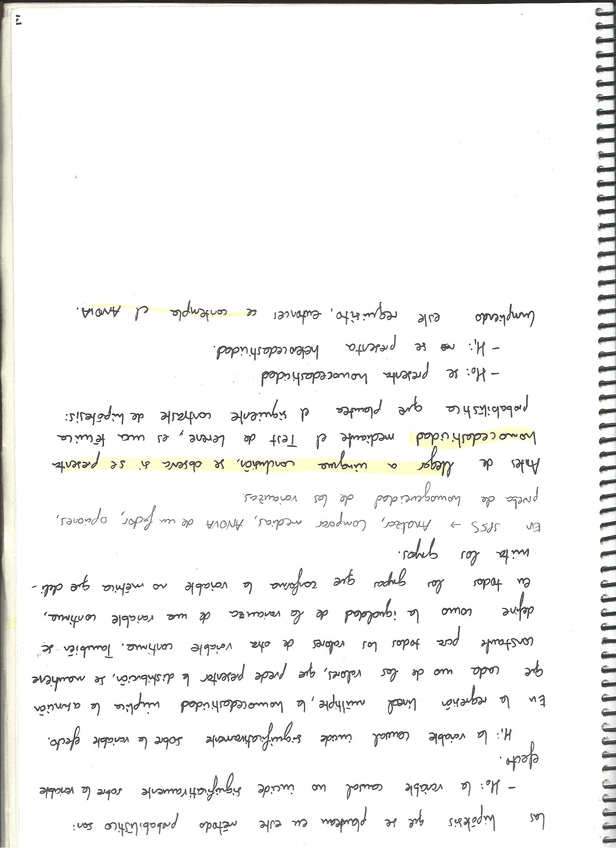 Las hipótesis que se plantean en este método probabilístico son:
- H₀: la variable causal no incide significativamente sobre la variable
efecto.
H₁: la variable causal incide significativamente sobre la variable efecto.
En la regresión lineal múltiple, la homocedasticidad implica la asunción
que cada uno de los valores, que puede presentar la distribución, se mantiene
constante para todos los valores de otra variable continua. También se
define como la igualdad de la varianza de una variable continua,
en todos los grupos que conforma la variable no métrica que deli-
mita los grupos.
En SPSS → Analizar, Comparar medias, ANOVA de un factor, opciones,
prueba de homogeneidad de las varianzas
Antes de llegar a ninguna conclusión, se observa si se presenta
homocedasticidad mediante el Test de Levene, es una técnica
probabilística que plantea el siguiente contraste de hipótesis:
- H₀: se presenta homocedasticidad
- H₁: se presenta heterocedasticidad.
Cumpliendo este requisito, entonces se contempla el ANOVA.